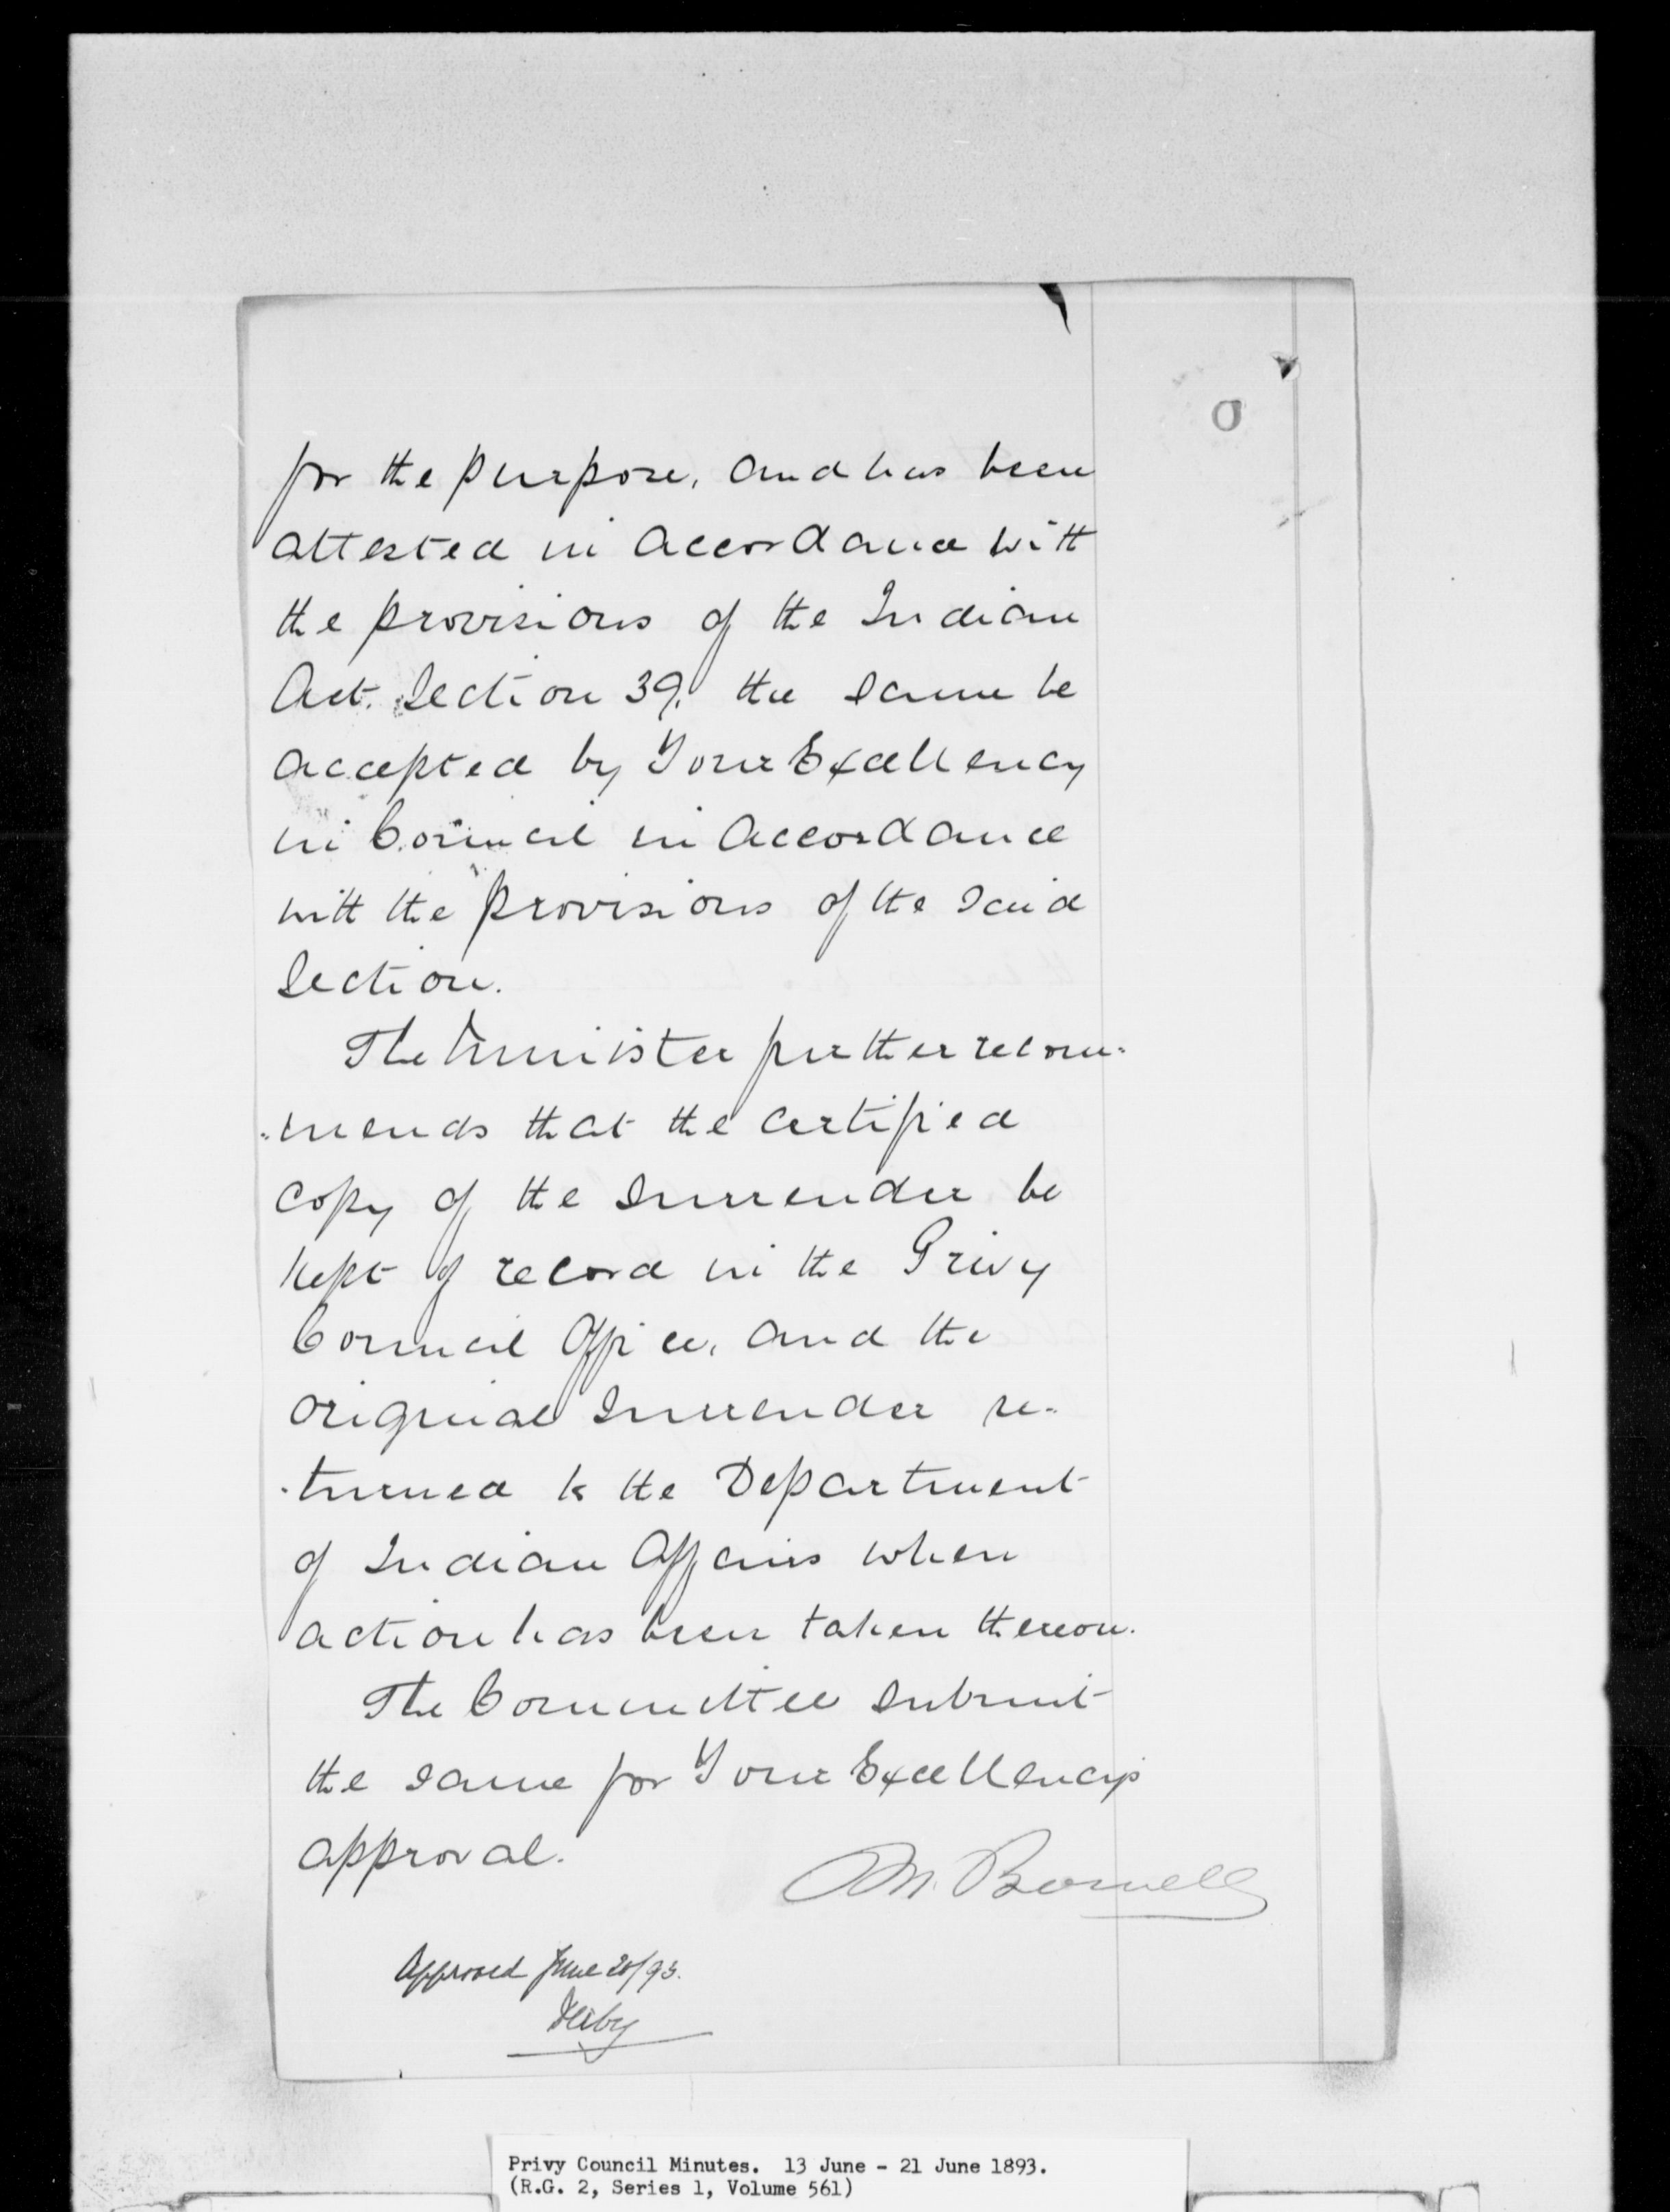 for the purpose, and has been
attested in accordance with
the provisions of the Indian
Act. Section 39. the same be
accepted by Your Excellency
in Council in accordance
with the provisions of the said
Section.
The Minister further recom-
-mends that the certified
copy of the surrender be
kept of record in the Privy
Council Office, and the
original surrender re-
-turned to the Department
of Indian Affairs when
action has been taken thereon.
The Committee submit
the same for Your Excellency's
approval.
M. Bowell
Approved June 20/93.
Derby
Privy Council Minutes. 13 June - 21 June 1893.
(R.G. 2, Series 1, Volume 561)